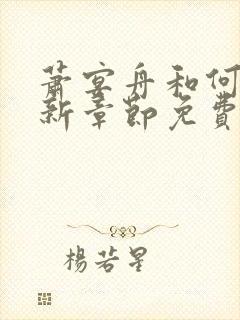 萧宴舟和何
新章节免费
杨若星